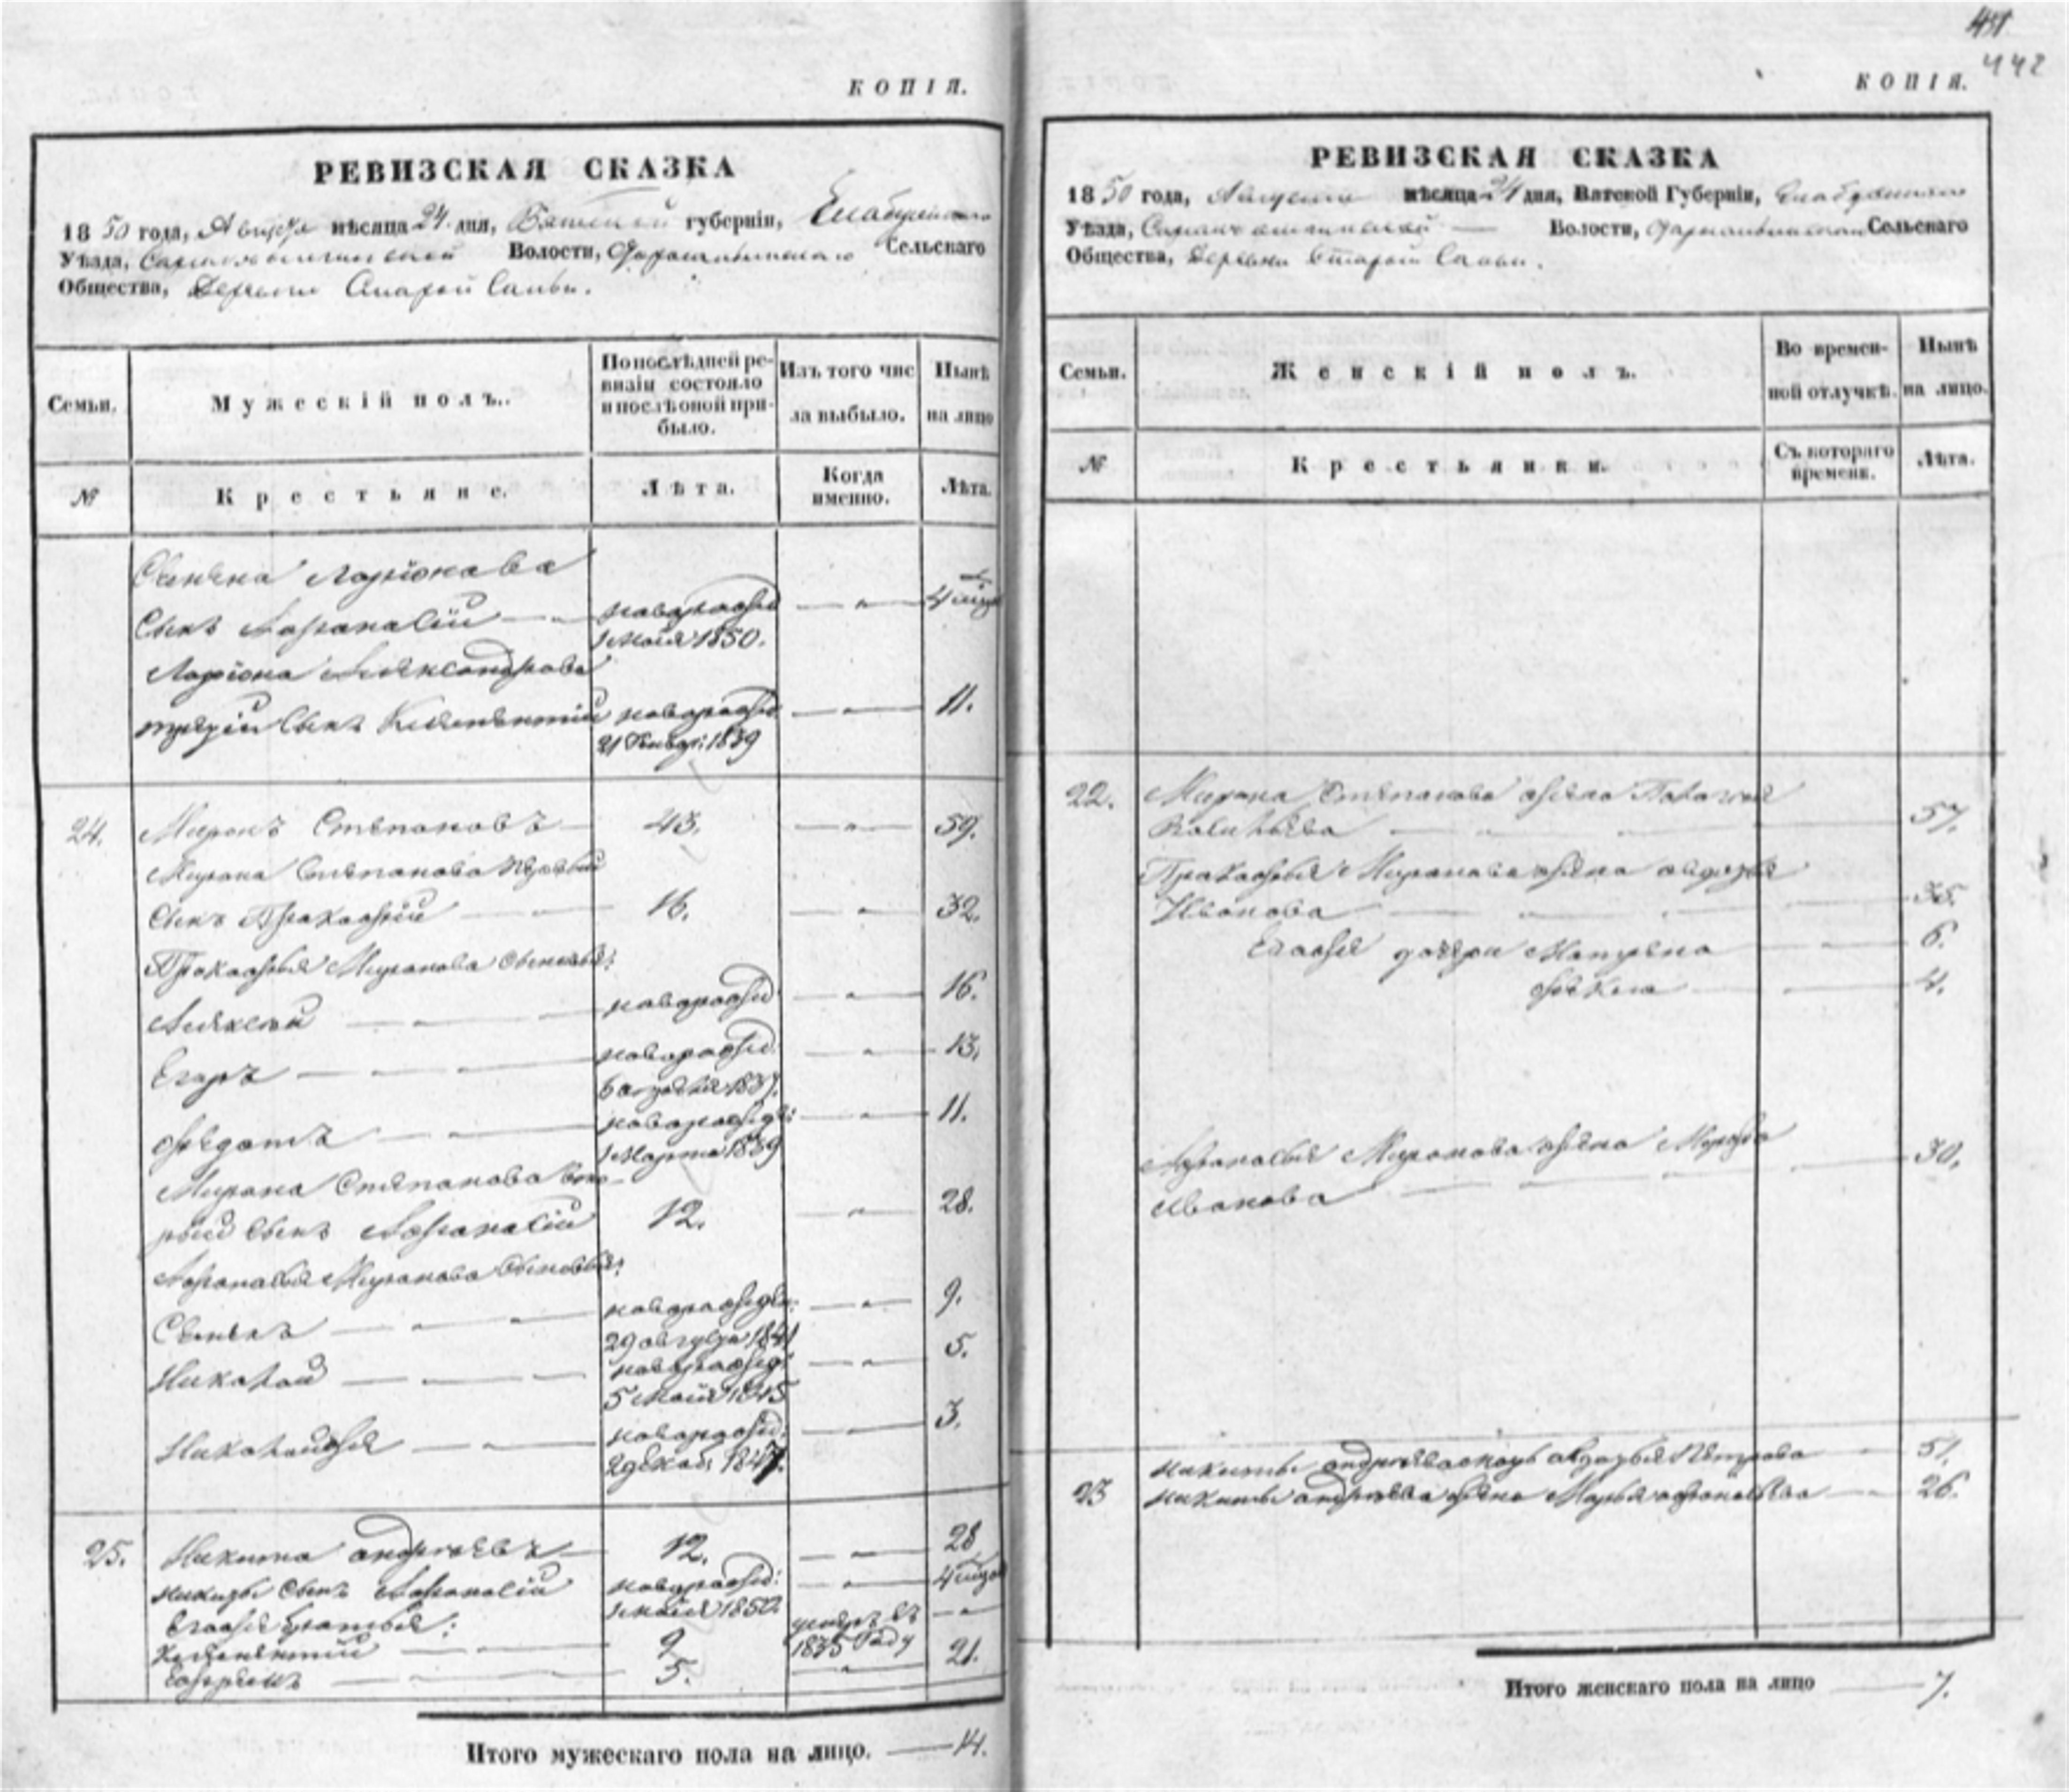 КОПІЯ.
РЕВИЗСКАЯ СКАЗКА
1850 года, Августа мѣсяца 24 дня, Вятской губерніи, Елабужскаго
Уѣзда, Волости, Сельскаго
Общества, Деревни Старой Сальи.
Семьи.
Мужескій полъ.
По послѣдней ре-
визіи состояло
и послѣ оной при-
было.
Изъ того чис
ла выбыло.
Нынѣ
на лицо
№
Крестьяне.
Лѣта.
Когда
именно.
Лѣта.
Семена Ларіонова
Сынъ Афанасій новорожд 4 мѣс
1 Мая 1850.
Ларіона Александрова
третій Сынъ Клементій новорожд 11.
21 Генвар: 1839
24. Миронъ Степановъ 43. 59.
Мирона Степанова первый
Сынъ Прокофій 16. 32.
Прокофья Миронова сыновья:
Алексѣй новорожд 16.
Егоръ новорожд 13.
6 апреля 1837.
Федотъ новорожд: 11.
1 Марта 1839
Мирона Степанова вто-
рый Сынъ Афанасій 12. 28.
Афанасья Миронова Сыновья:
Семенъ новорожден: 9.
29 августа 1841
Николай новорожд: 5.
5 Мая 1845
Николай же новорожд: 3.
2 декаб: 1847.
25. Никита Андреевъ 12. 28
Никиты сынъ Афанасій новорожд: 4 мѣс
1 Мая 1850.
Его же братья:
Клементій 9 умеръ въ
1835 Году
Ефремъ 5. 21.
Итого мужескаго пола на лицо. 14.
442
КОПІЯ.
РЕВИЗСКАЯ СКАЗКА
1850 года, Августа мѣсяца 24 дня, Вятской Губерніи, Елабужскаго
Уѣзда, Волости, Сельскаго
Общества, Деревни Старой Сальи.
Семьи.
Женскій полъ.
Во времен-
ной отлучкѣ.
Нынѣ
на лицо.
№
Крестьянки.
Съ котораго
времени.
Лѣта.
22. Мирона Степанова жена Палагея
Савельева 57.
Прокофья Миронова жена Авдотья
Иванова 35.
Его же дочери Матрена 6.
Фекла 4.
Афанасья Миронова жена Марфа
Иванова 30.
Никиты Андреева мать Авдотья Петрова 51.
23 Никиты Андреева жена Марья Афанасьева 26.
Итого женскаго пола на лицо 7.